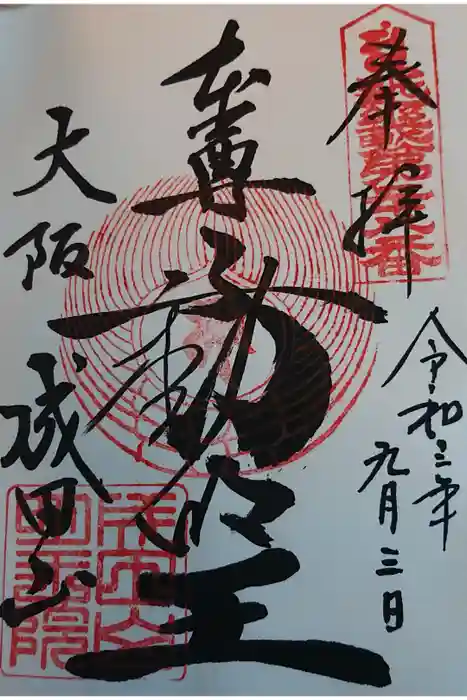 奉拝
令和三年
九月三日
本尊
不動明王
大阪
成田山